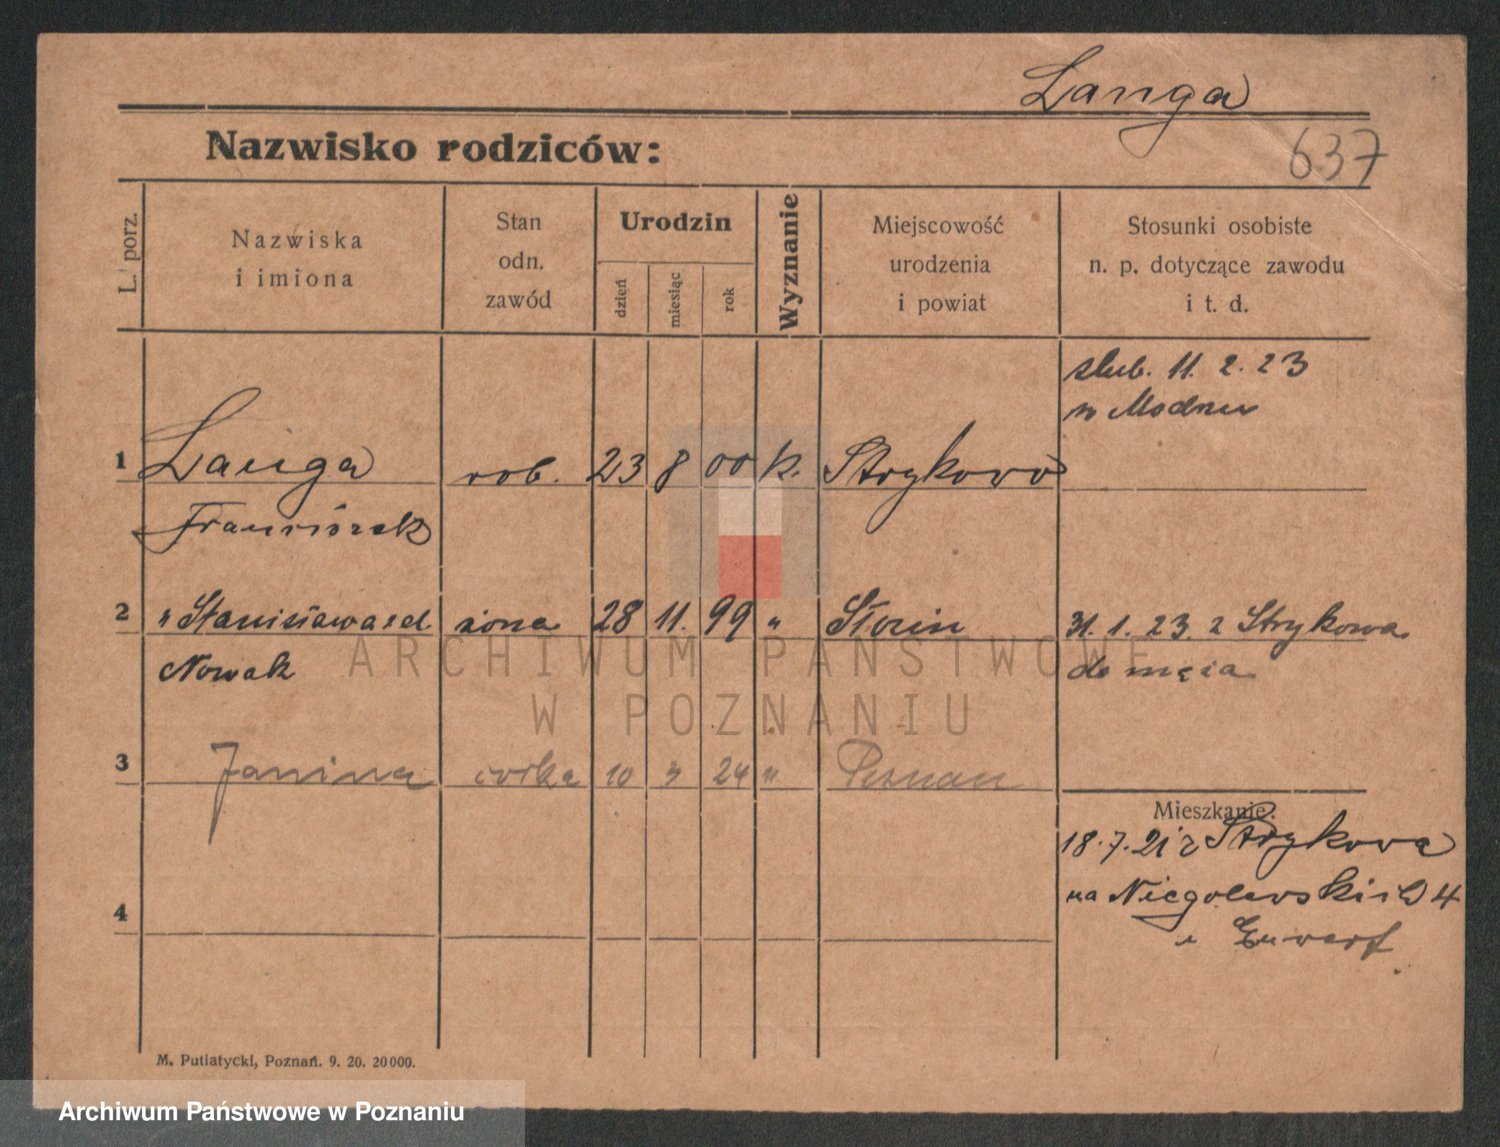 Langa
637
Nazwisko rodziców:
L. porz.
Nazwiska
i imiona
Stan
odn.
zawód
Urodzin
dzień
miesiąc
rok
Wyznanie
Miejscowość
urodzenia
i powiat
Stosunki osobiste
n. p. dotyczące zawodu
i t. d.
ślub. 11. 2. 23
w Modrzu
1 Langa rob. 23 8 00 k. Strykowo
Franciszek
2 " Stanisława zd żona 28 11. 99 " Słonin 31. 1. 23. z Strykowa
Nowak do męża
3 Janina córka 10 3 24 " Poznań
Mieszkanie:
18. 7. 21 z Strykowa
na Niegolewskich 4
4
M. Putiatycki, Poznań. 9. 20. 20000.
ARCHIWUM PAŃSTWOWE
W POZNANIU
Archiwum Państwowe w Poznaniu